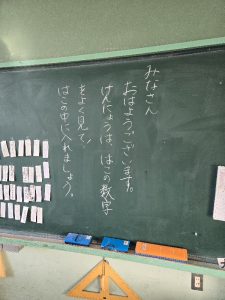 みなさん
おはようございます。
けんにょうは はこの数字
をよく見て!
はこの中に入れましょう。